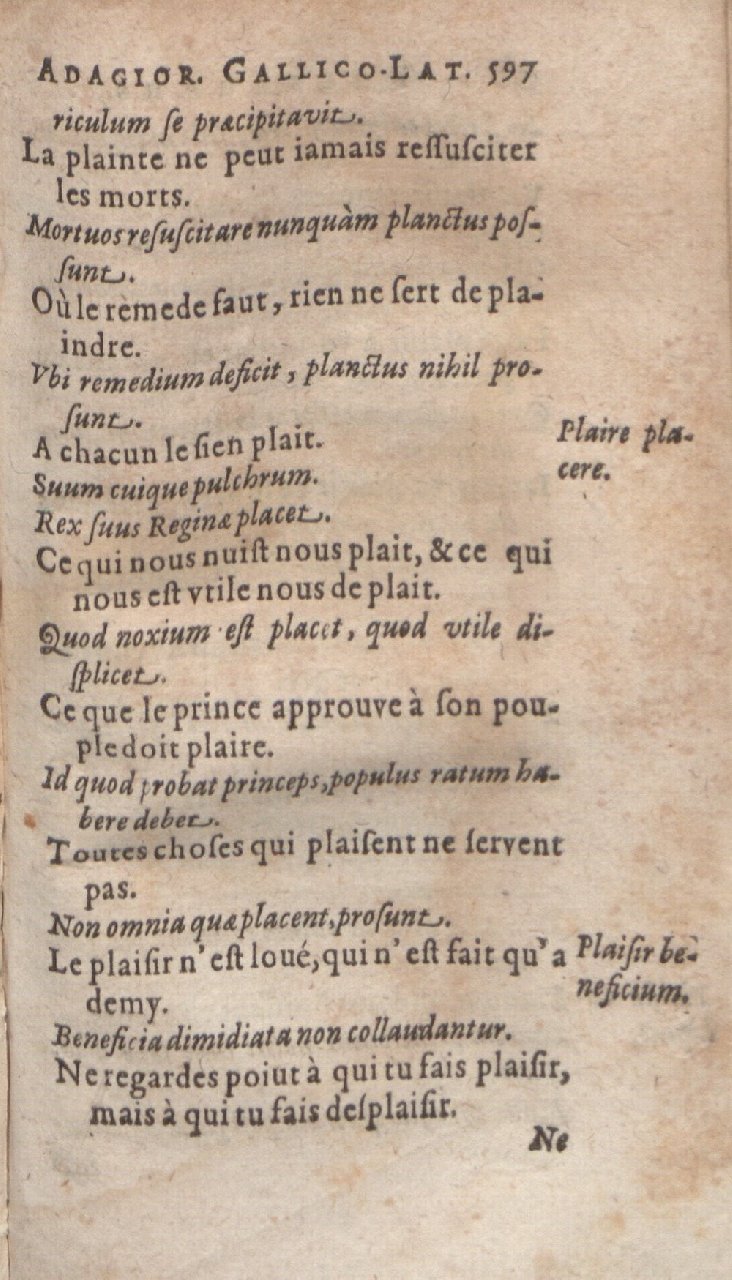 ADAGIOR. GALLICO-LAT. 597
riculum ſe præcipitavit.
La plainte ne peut iamais reſſuſciter
les morts.
Mortuos reſuſcitare nunquàm planctus poſ-
ſunt.
Où le remede faut, rien ne ſert de pla-
indre.
Vbi remedium deficit, planctus nihil pro-
ſunt.
A chacun le ſien plait.
Plaire pla-
cere.
Suum cuique pulchrum.
Rex ſuus Reginæ placet.
Ce qui nous nuiſt nous plait, & ce qui
nous eſt vtile nous de plait.
Quod noxium eſt placet, quod vtile di-
ſplicet.
Ce que le prince approuve à ſon pou-
ple doit plaire.
Id quod probat princeps, populus ratum ha-
bere debet.
Toutes choſes qui plaiſent ne ſervent
pas.
Non omnia quæ placent, proſunt.
Le plaiſir n'eſt loué, qui n'eſt fait qu'a
demy.
Plaiſir be-
neficium.
Beneficia dimidiata non collaudantur.
Ne regardes poiut à qui tu fais plaiſir,
mais à qui tu fais deſplaiſir.
Ne